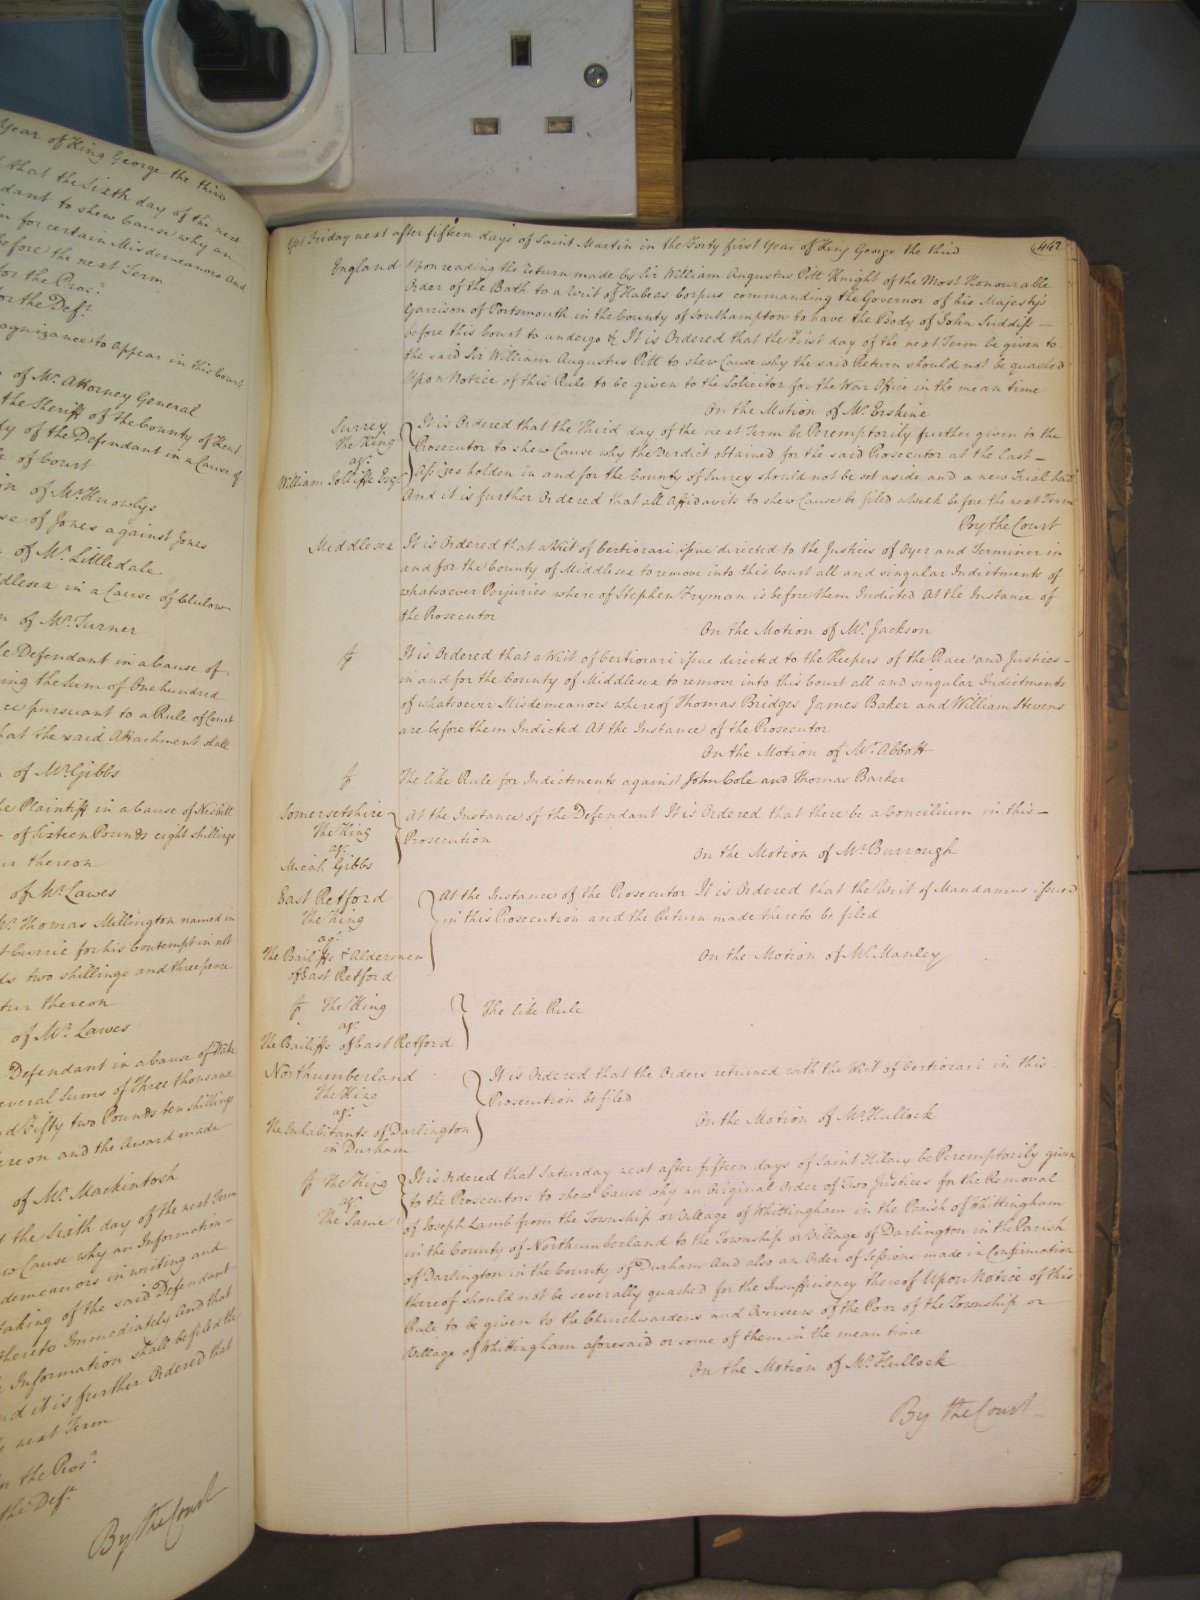 Year of King George the third
that the Sixth day of the next
dant to shew Cause why an
for certain Misdemeanors And
before the next Term
for the Pros.r
for the Def.t
ognizance to appear in this Court
of Mr. Attorney General
the Sheriff of the County of Kent
dy of the Defendant in a Cause of
of Court
on of Mr. Knowlys
se of Jones against Jones
of Mr. Littledale
ddlesex in a Cause of Clulow
of Mr. Turner
le Defendant in a Cause of
ing the Sum of One hundred
ce pursuant to a Rule of Court
hat the said Attachment shall
of Mr. Gibbs
he Plaintiff in a Cause of Nesbitt
of Sixteen Pounds eight shillings
thereon
of Mr. Lawes
Thomas Millington named in
for his Contempt in not
ds two shillings and three pence
tur thereon
of Mr. Lawes
Defendant in a Cause of
everal Sums of Three thousand
nd Fifty two Pounds ten shillings
ereon and the Award made
of Mr. Mackintosh
the Sixth day of the next Term
w Cause why an Information
demeanors in writing and
taking of the said Defendant
thereto Immediately And that
Information shall be filed the
nd it is further Ordered that
next Term
for the Pros.r
the Def.t
By the Court
Yet Friday next after fifteen days of Saint Martin in the Forty first Year of King George the third
442
England
Upon reading the Return made by Sir William Augustus Pitt Knight of the Most Honourable
Order of the Bath to a Writ of Habeas Corpus commanding the Governor of his Majesty's
Garrison of Portsmouth in the County of Southampton to have the Body of John Suddiss
before this Court to undergo &c It is Ordered that the First day of the next Term be given to
the said Sir William Augustus Pitt to shew Cause why the said Return should not be quashed
Upon Notice of this Rule to be given to the Solicitor for the War Office in the mean time
On the Motion of Mr. Erskine
Surrey
The King
ag.t
William Jolliffe Esq.r
It is Ordered that the Third day of the next Term be Peremptorily further given to the
Prosecutor to shew Cause why the Verdict obtained for the said Prosecutor at the last
Assizes holden in and for the County of Surrey should not be set aside and a new Trial had
And it is further Ordered that all Affidavits to shew Cause be filed a Week before the next Term
By the Court
Middlesex
It is Ordered that a Writ of Certiorari issue directed to the Justices of Oyer and Terminer in
and for the County of Middlesex to remove into this Court all and singular Indictments of
whatsoever Perjuries whereof Stephen Fryman is before them Indicted At the Instance of
the Prosecutor
On the Motion of Mr. Jackson
It is Ordered that a Writ of Certiorari issue directed to the Keepers of the Peace and Justices
in and for the County of Middlesex to remove into this Court all and singular Indictments
of whatsoever Misdemeanors whereof Thomas Bridges James Baker and William Stevens
are before them Indicted At the Instance of the Prosecutor
On the Motion of Mr. Abbott
The like Rule for Indictments against John Cole and Thomas Barker
Somersetshire
The King
ag.t
Micah Gibbs
At the Instance of the Defendant It is Ordered that there be a Concilium in this
Prosecution
On the Motion of Mr. Burrough
East Retford
The King
ag.t
The Bailiffs & Aldermen
of East Retford
At the Instance of the Prosecutor It is Ordered that the Writ of Mandamus issued
in this Prosecution and the Return made thereto be filed
On the Motion of Mr. Manley
The King
ag.t
The Bailiffs of East Retford
The like Rule
Northumberland
The King
ag.t
The Inhabitants of Darlington
in Durham
It is Ordered that the Orders returned with the Writ of Certiorari in this
Prosecution be filed
On the Motion of Mr. Hullock
The King
ag.t
The Same
It is Ordered that Saturday next after fifteen days of Saint Hilary be Peremptorily given
to the Prosecutors to shew Cause why an Original Order of Two Justices for the Removal
of Joseph Lamb from the Township or Village of Whittingham in the Parish of Whittingham
in the County of Northumberland to the Township or Village of Darlington in the Parish
of Darlington in the County of Durham And also an Order of Sessions made in Confirmation
thereof should not be severally quashed for the Insufficiency thereof Upon Notice of this
Rule to be given to the Churchwardens and Overseers of the Poor of the Township or
Village of Whittingham aforesaid or some of them in the mean time
On the Motion of Mr. Hullock
By the Court